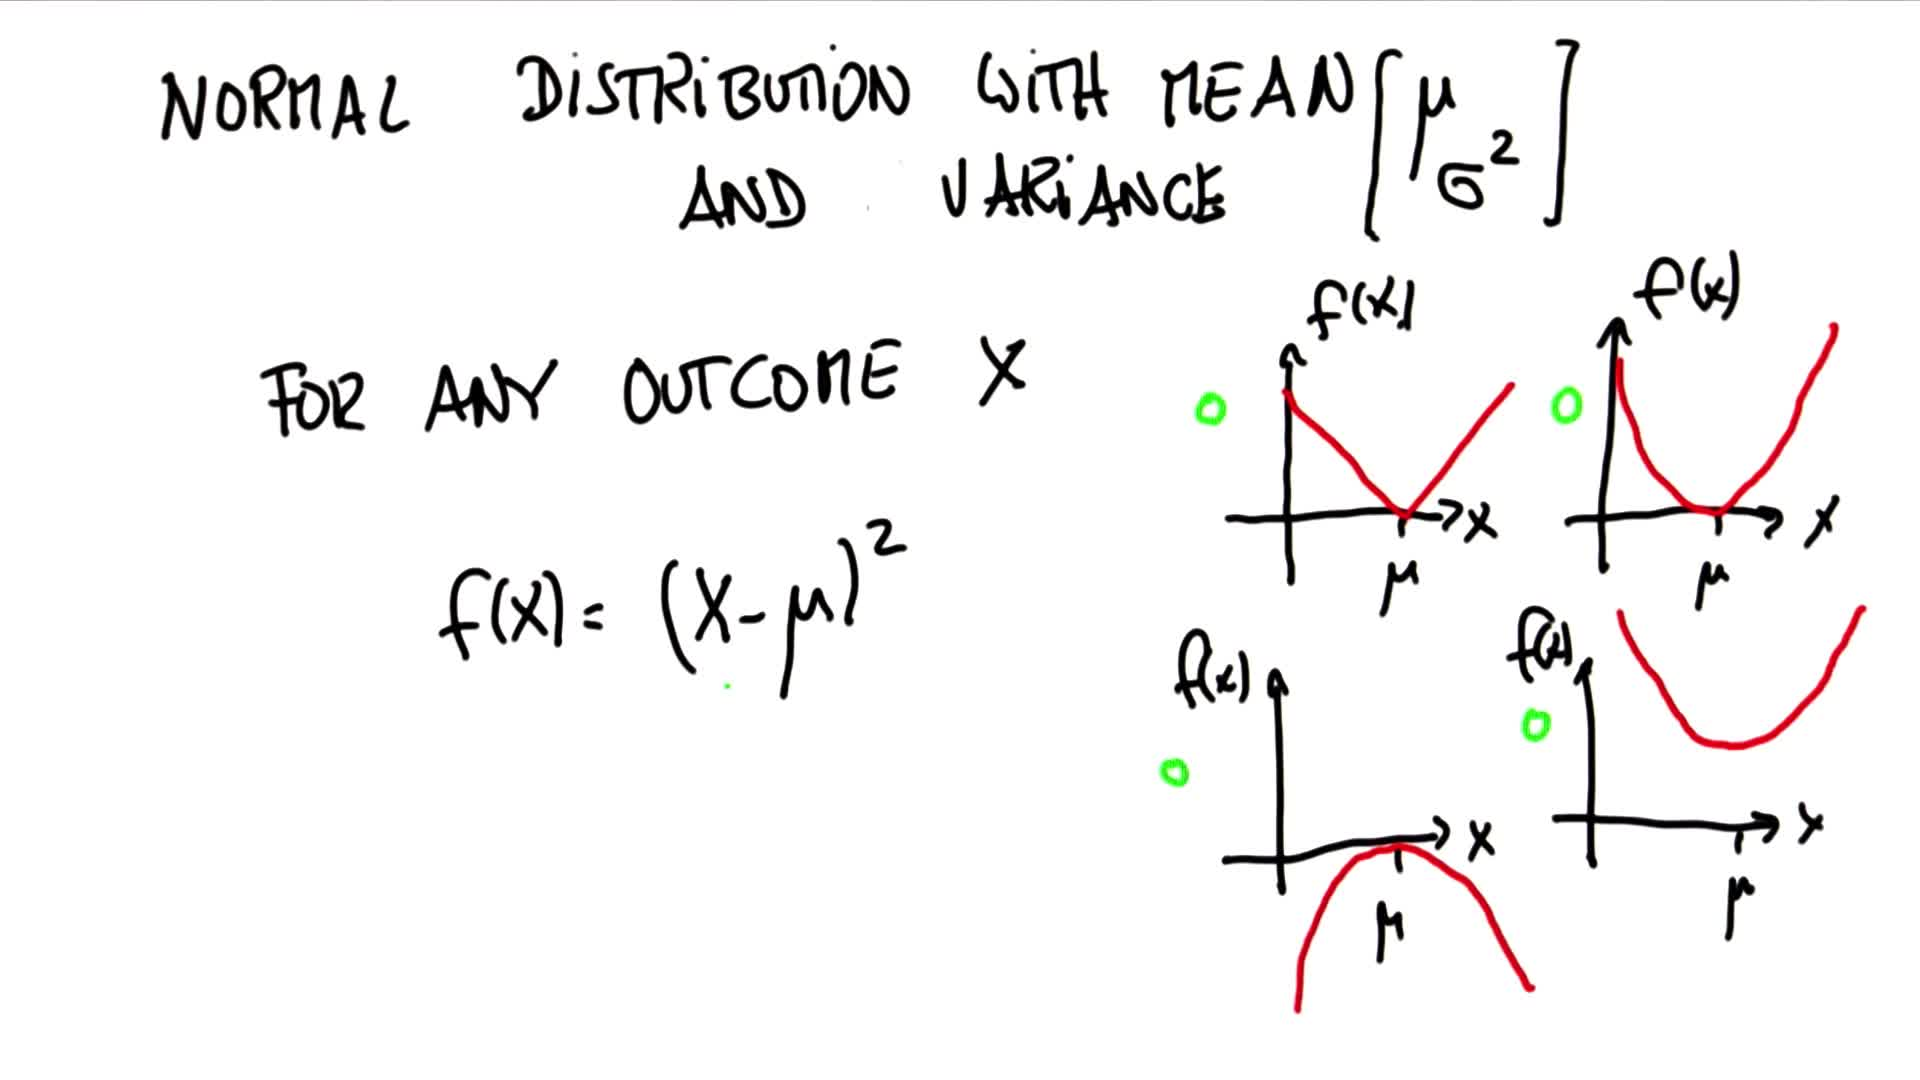 NORMAL DISTRIBUTION WITH MEAN [μ
AND VARIANCE σ²]
FOR ANY OUTCOME X
f(X) = (X-μ)²
f(X)
X
μ
f(x)
X
μ
f(x)
X
μ
f(x)
X
μ